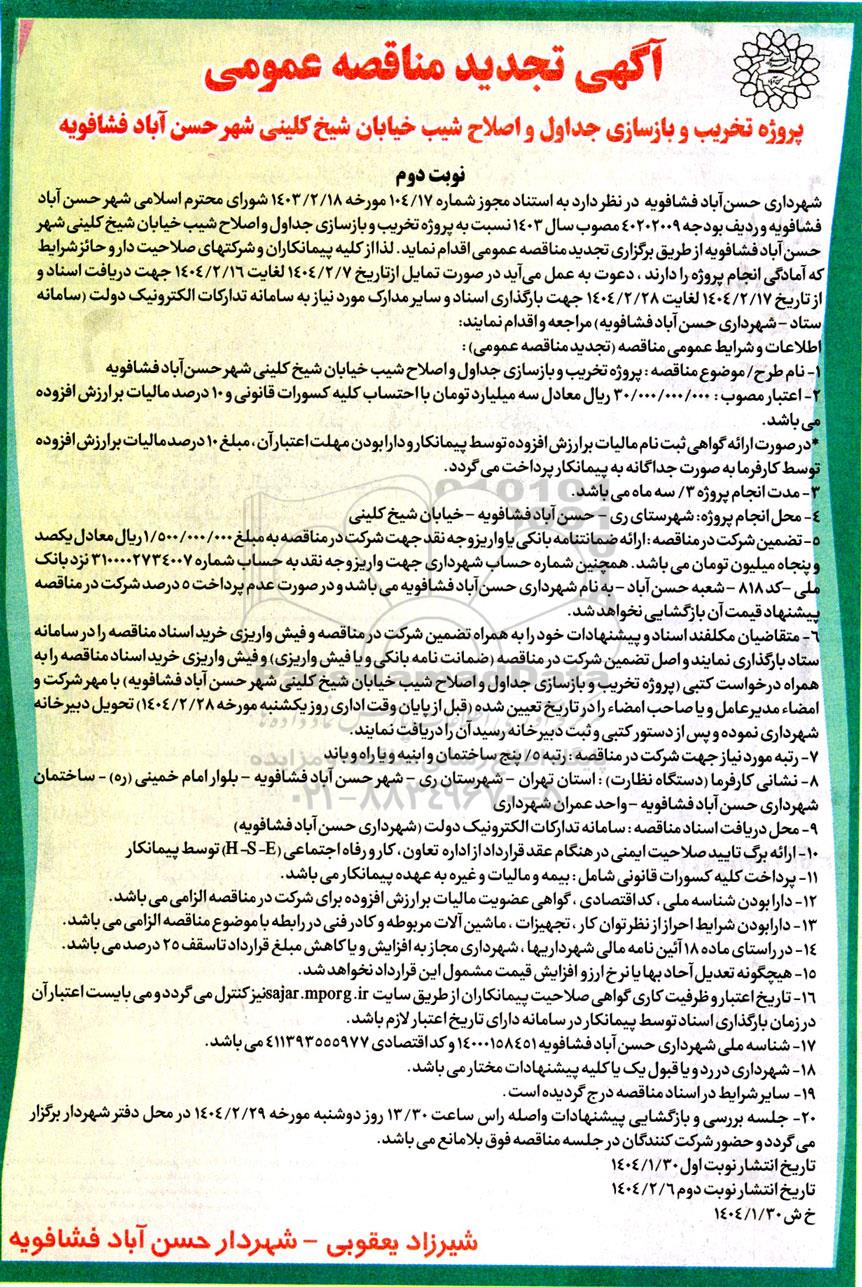 آگهی تجدید مناقصه عمومی
پروژه تخریب و بازسازی جداول و اصلاح شیب خیابان شیخ کلینی شهر حسن آباد فشافویه
نوبت دوم
شهرداری حسن‌آباد فشافویه در نظر دارد به استناد مجوز شماره ۱۰۴/۱۷ مورخه ۱۴۰۳/۲/۱۸ شورای محترم اسلامی شهر حسن آباد
فشافویه و ردیف بودجه ۴۰۲۰۲۰۰۹ مصوب سال ۱۴۰۳ نسبت به پروژه تخریب و بازسازی جداول و اصلاح شیب خیابان شیخ کلینی شهر
حسن آباد فشافویه از طریق برگزاری تجدید مناقصه عمومی اقدام نماید. لذا از کلیه پیمانکاران و شرکتهای صلاحیت دار و حائز شرایط
که آمادگی انجام پروژه را دارند ، دعوت به عمل می‌آید در صورت تمایل از تاریخ ۱۴۰۴/۲/۷ لغایت ۱۴۰۴/۲/۱۶ جهت دریافت اسناد و
از تاریخ ۱۴۰۴/۲/۱۷ لغایت ۱۴۰۴/۲/۲۸ جهت بارگذاری اسناد و سایر مدارک مورد نیاز به سامانه تدارکات الکترونیک دولت (سامانه
ستاد - شهرداری حسن آباد فشافویه) مراجعه و اقدام نمایند:
اطلاعات و شرایط عمومی مناقصه (تجدید مناقصه عمومی) :
۱- نام طرح/ موضوع مناقصه : پروژه تخریب و بازسازی جداول و اصلاح شیب خیابان شیخ کلینی شهر حسن‌آباد فشافویه
۲- اعتبار مصوب : ۳۰/۰۰۰/۰۰۰/۰۰۰ ریال معادل سه میلیارد تومان با احتساب کلیه کسورات قانونی و ۱۰ درصد مالیات بر ارزش افزوده
می باشد.
*در صورت ارائه گواهی ثبت نام مالیات بر ارزش افزوده توسط پیمانکار و دارا بودن مهلت اعتبار آن ، مبلغ ۱۰ درصد مالیات بر ارزش افزوده
توسط کارفرما به صورت جداگانه به پیمانکار پرداخت می گردد.
۳- مدت انجام پروژه ۳/ سه ماه می باشد.
۴- محل انجام پروژه: شهرستای ری - حسن آباد فشافویه - خیابان شیخ کلینی
۵- تضمین شرکت در مناقصه : ارائه ضمانتنامه بانکی یا واریز وجه نقد جهت شرکت در مناقصه به مبلغ ۱/۵۰۰/۰۰۰/۰۰۰ ریال معادل یکصد
و پنجاه میلیون تومان می باشد. همچنین شماره حساب شهرداری جهت واریز وجه نقد به حساب شماره ۳۱۰۰۰۰۲۷۳۴۰۰۷ نزد بانک
ملی -کد ۸۱۸ - شعبه حسن آباد - به نام شهرداری حسن‌آباد فشافویه می باشد و در صورت عدم پرداخت ۵ درصد شرکت در مناقصه
پیشنهاد قیمت آن بازگشایی نخواهد شد.
۶- متقاضیان مکلفند اسناد و پیشنهادات خود را به همراه تضمین شرکت در مناقصه و فیش واریزی خرید اسناد مناقصه را در سامانه
ستاد بارگذاری نمایند و اصل تضمین شرکت در مناقصه (ضمانت نامه بانکی و یا فیش واریزی) و فیش واریزی خرید اسناد مناقصه را به
همراه درخواست کتبی (پروژه تخریب و بازسازی جداول و اصلاح شیب خیابان شیخ کلینی شهر حسن آباد فشافویه) با مهر شرکت و
امضاء مدیر عامل و یا صاحب امضاء را در تاریخ تعیین شده (قبل از پایان وقت اداری روز یکشنبه مورخه ۱۴۰۴/۲/۲۸) تحویل دبیرخانه
شهرداری نموده و پس از دستور کتبی و ثبت دبیرخانه رسید آن را دریافت نمایند.
۷- رتبه مورد نیاز جهت شرکت در مناقصه : رتبه ۵/ پنج ساختمان و ابنیه و یا راه و باند
۸- نشانی کارفرما (دستگاه نظارت) : استان تهران - شهرستان ری - شهر حسن آباد فشافویه - بلوار امام خمینی (ره) - ساختمان
شهرداری حسن آباد فشافویه -واحد عمران شهرداری
۹- محل دریافت اسناد مناقصه : سامانه تدارکات الکترونیک دولت (شهرداری حسن آباد فشافویه)
۱۰- ارائه برگ تایید صلاحیت ایمنی در هنگام عقد قرارداد از اداره تعاون ، کار و رفاه اجتماعی (H-S-E) توسط پیمانکار
۱۱- پرداخت کلیه کسورات قانونی شامل : بیمه و مالیات و غیره به عهده پیمانکار می باشد.
۱۲- دارا بودن شناسه ملی ، کد اقتصادی ، گواهی عضویت مالیات بر ارزش افزوده برای شرکت در مناقصه الزامی می باشد.
۱۳- دارا بودن شرایط احراز از نظر توان کار ، تجهیزات ، ماشین آلات مربوطه و کادر فنی در رابطه با موضوع مناقصه الزامی می باشد.
۱۴- در راستای ماده ۱۸ آئین نامه مالی شهرداریها ، شهرداری مجاز به افزایش و یا کاهش مبلغ قرارداد تا سقف ۲۵ درصد می باشد.
۱۵- هیچگونه تعدیل آحاد بها یا نرخ ارز و افزایش قیمت مشمول این قرارداد نخواهد شد.
۱۶- تاریخ اعتبار و ظرفیت کاری گواهی صلاحیت پیمانکاران از طریق سایت sajar.mporg.ir نیز کنترل می گردد و می بایست اعتبار آن
در زمان بارگذاری اسناد توسط پیمانکار در سامانه دارای تاریخ اعتبار لازم باشد.
۱۷- شناسه ملی شهرداری حسن آباد فشافویه ۱۴۰۰۰۱۵۸۴۵۱ و کد اقتصادی ۴۱۱۳۹۳۵۵۵۹۷۷ می باشد.
۱۸- شهرداری در رد و یا قبول یک یا کلیه پیشنهادات مختار می باشد.
۱۹- سایر شرایط در اسناد مناقصه درج گردیده است .
۲۰- جلسه بررسی و بازگشایی پیشنهادات واصله راس ساعت ۱۳/۳۰ روز دوشنبه مورخه ۱۴۰۴/۲/۲۹ در محل دفتر شهردار برگزار
می گردد و حضور شرکت کنندگان در جلسه مناقصه فوق بلامانع می باشد.
تاریخ انتشار نوبت اول ۱۴۰۴/۱/۳۰
تاریخ انتشار نوبت دوم ۱۴۰۴/۲/۶
خ ش ۱۴۰۴/۱/۳۰
شیرزاد یعقوبی - شهردار حسن آباد فشافویه